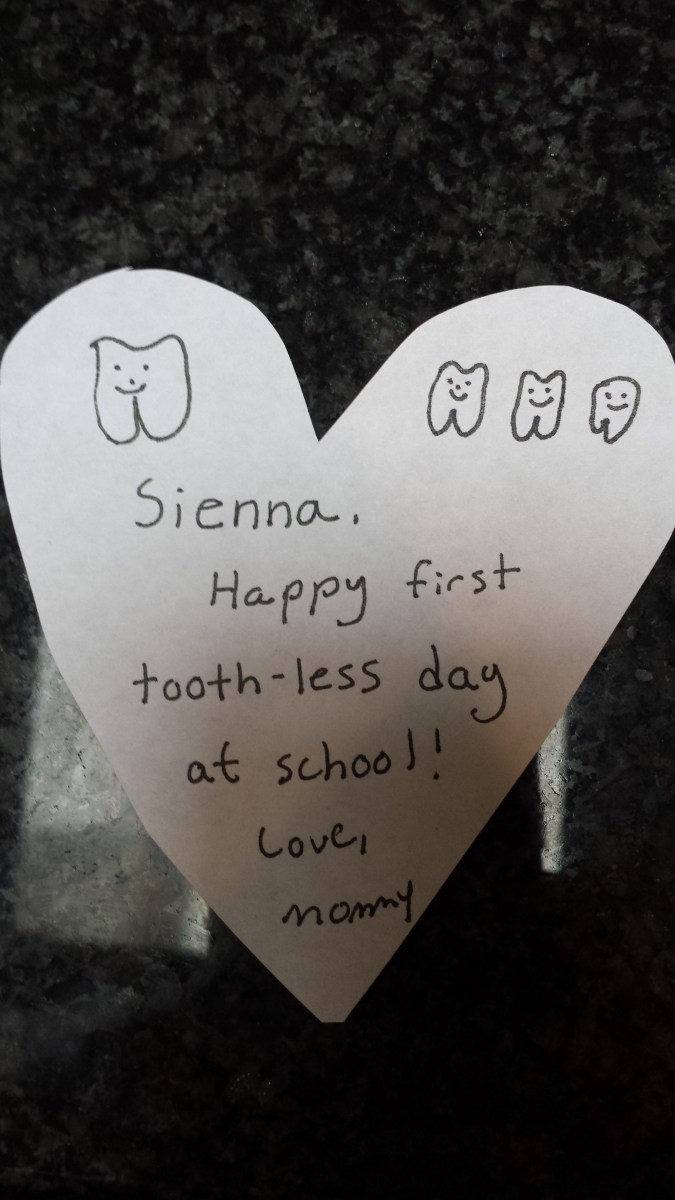 Sienna.
Happy first
tooth-less day
at school!
Love,
mommy